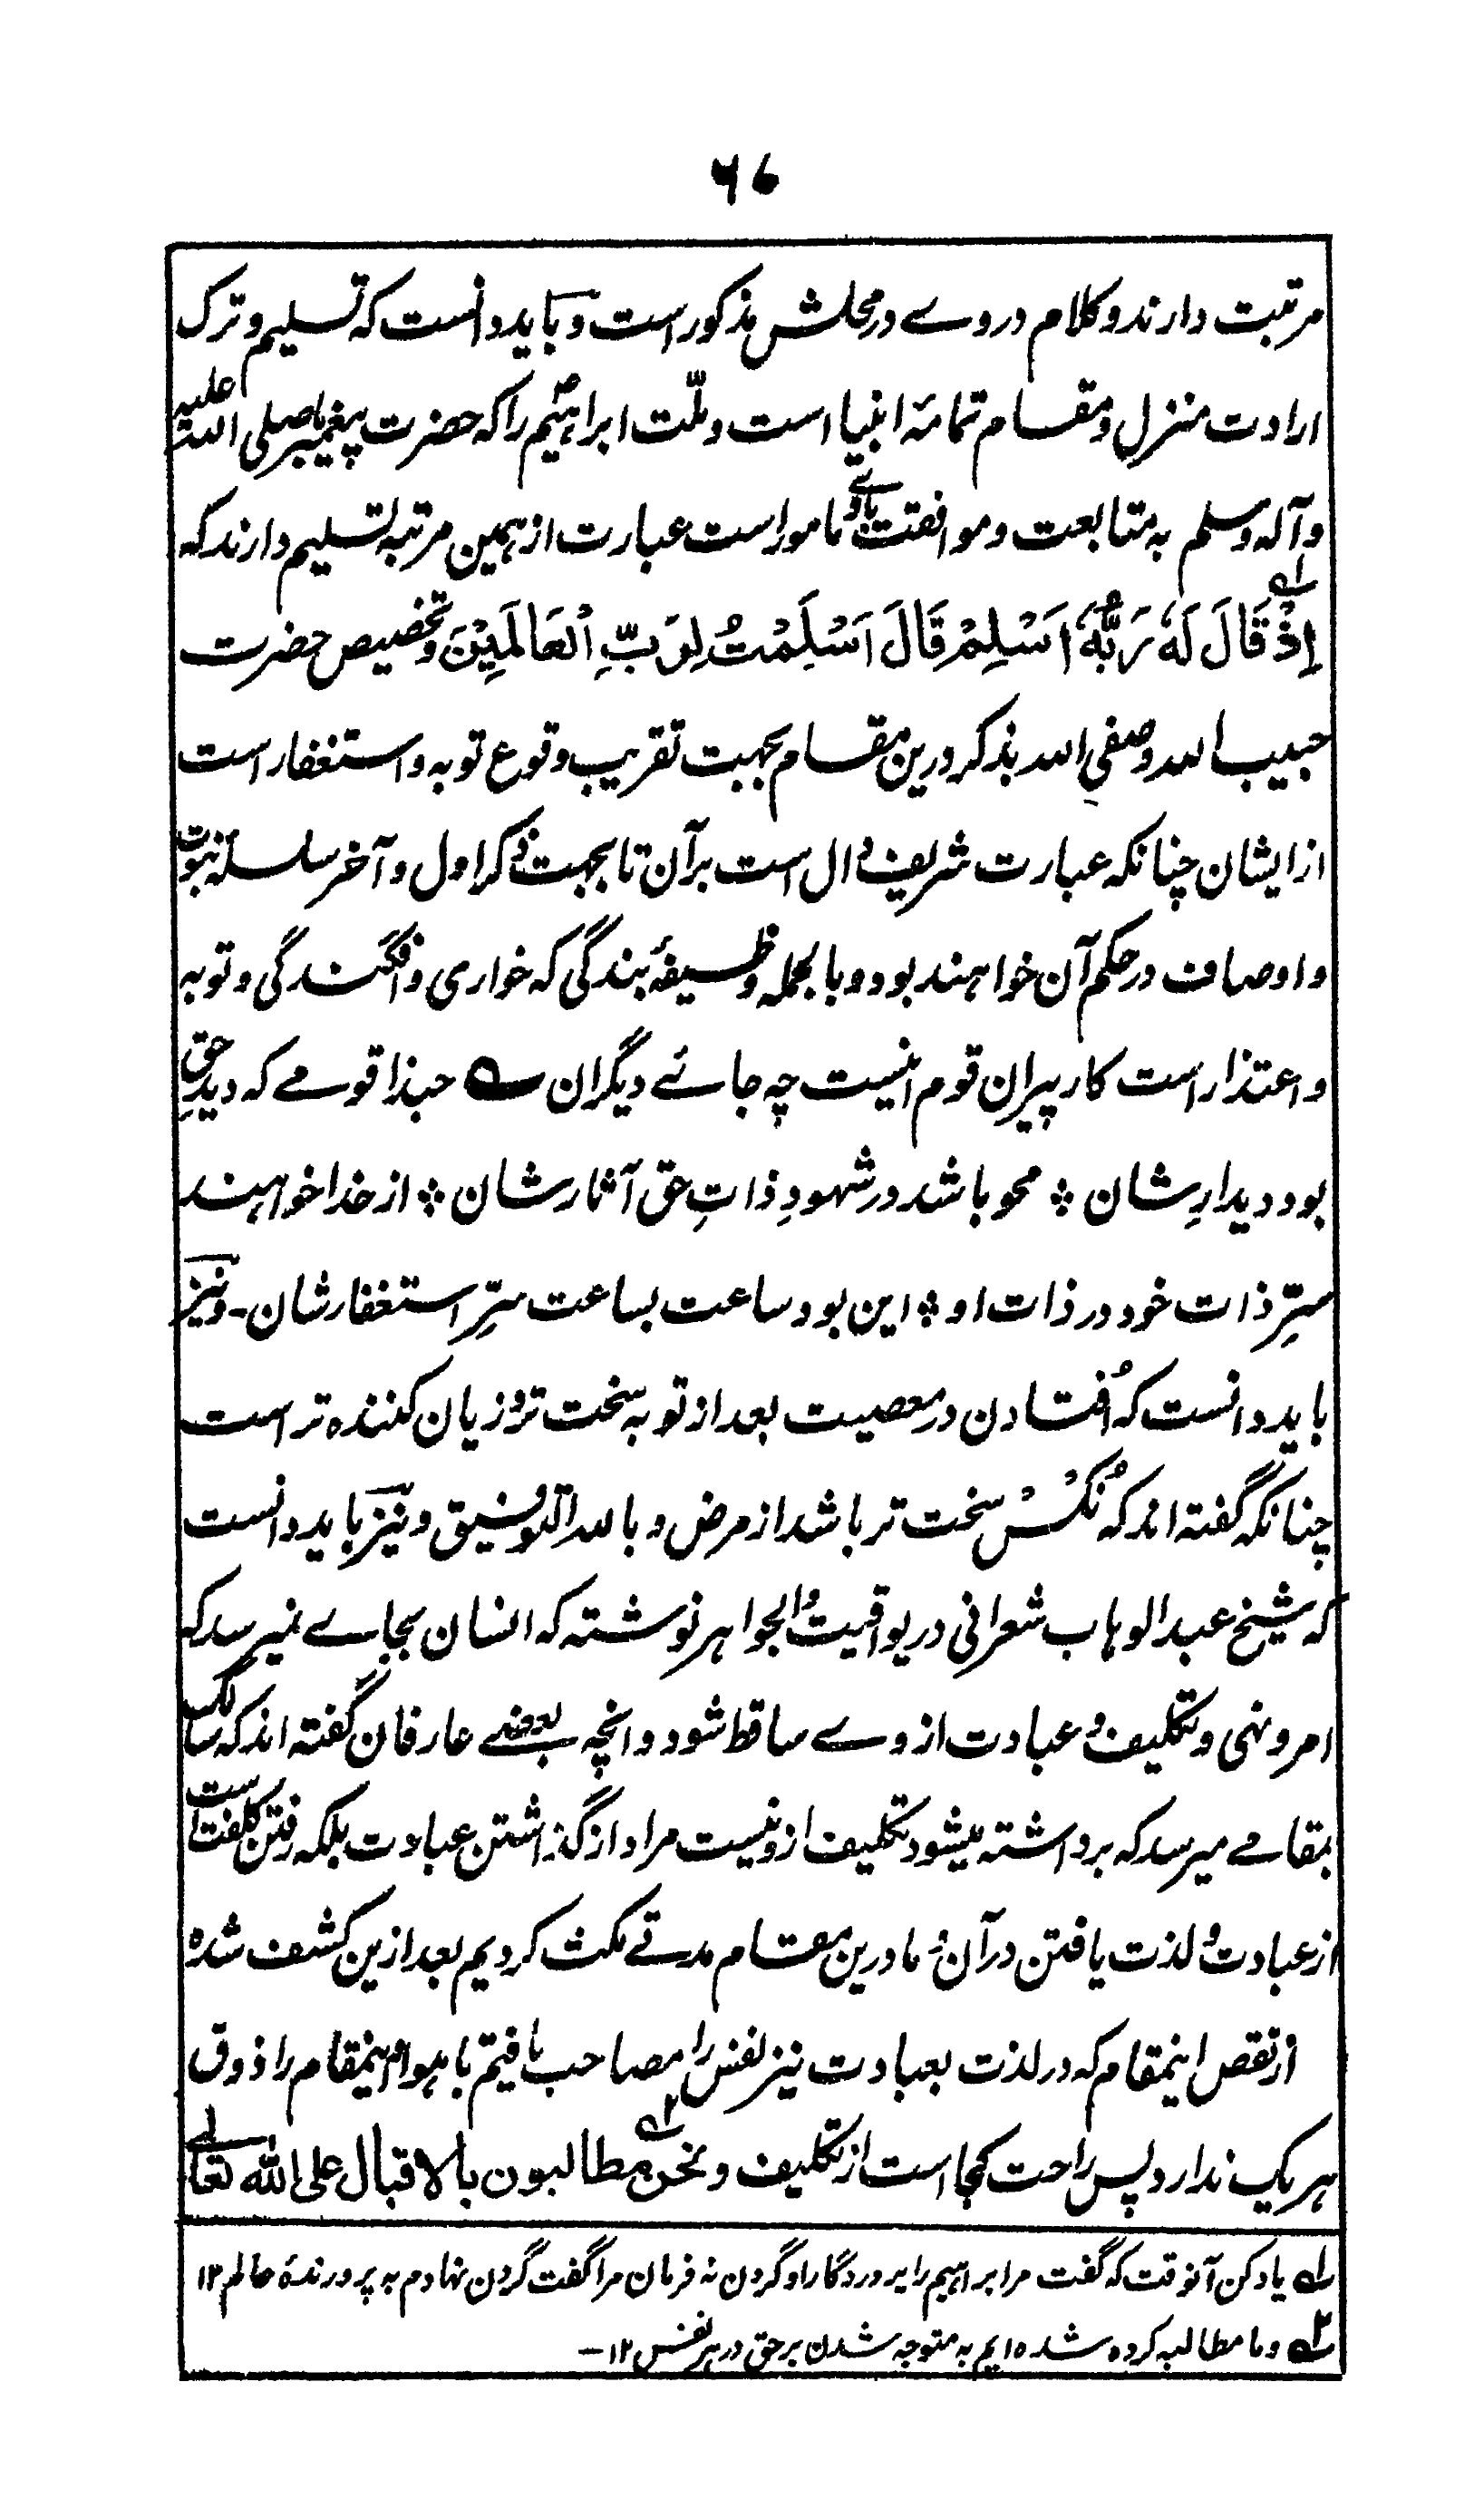 ۶۷
مرتبت دارند و کلام در وے در محلش مذکور است و باید دانست که تسلیم و ترک
ارادت منزل و مقام تمامۂ انبیا است و ملّت ابراہیم را که حضرت پیغمبر ما صلی الله علیه
و آله وسلم به متابعت و موافقت باوے مامور است عبارت از ہمین مرتبہ تسلیم دارند که
اِذْ قَالَ لَهٗ رَبُّهٗ اَسْلِمْ قَالَ اَسْلَمْتُ لِرَبِّ الْعَالَمِيْنَ و تخصیص حضرت
حبیب الله و صفی الله بذکر درین مقام بجهت تقریب وقوع توبه و استغفار است
از ایشان چنانکه عبارت شریف دال است بر آن تا بجهت ذکر اول و آخر سلسلۂ نبوت
و اوصاف در حکم آن خواهند بود و بالجمله وظیفۂ بندگی که خواری و افگندگی و توبه
و اعتذار است کار پیران قوم اینست چه جائے دیگران ؎ حبذا قومے که دیدِ حق
بود دیدارِ شان ؞ محو باشد در شهودِ ذاتِ حق آثار شان ؞ از خدا خواهند
سترِ ذات خود در ذات او ؞ این بود ساعت بساعت سترِ استغفار شان ۔ و نیز
باید دانست که اُفتادن در معصیت بعد از توبه سخت تر و زیان کننده تر است
چنانکه گفته اند که نُکْسْ سخت تر باشد از مرض و بالله التوفیق و نیز باید دانست
که شیخ عبد الوهاب شعرانی در یواقیت و الجواهر نوشته که انسان بجاے نمیرسد که
امر و نهی و تکلیف و عبادت از وے ساقط شود و انچه بعضے عارفان گفته اند که سالک
بمقامے میرسد که برداشته میشود تکلیف ازو نیست مراد از گذاشتن عبادت بلکه رفتن کلفت است
از عبادت و لذت یافتن در آن و ما درین مقام مدتے مکث کردیم بعد ازین کشف شده
از نقص اینمقام که در لذت بعبادت نیز نفس را مصاحب یافتیم با هوا و اینمقام را ذوق
هر یک ندارد پس راحت کجا است از تکلیف و نحن مطالبون بالاقبال علی الله تعالے
۱؎ یاد کن آنوقت که گفت مر ابراهیم را پروردگار او گردن نه فرمان مرا گفت گردن نهادم به پرورندۂ عالم ۱۲
۲؎ و ما مطالبه کرده شده ایم به متوجه شدن بر حق در هر نفس ۱۲ –